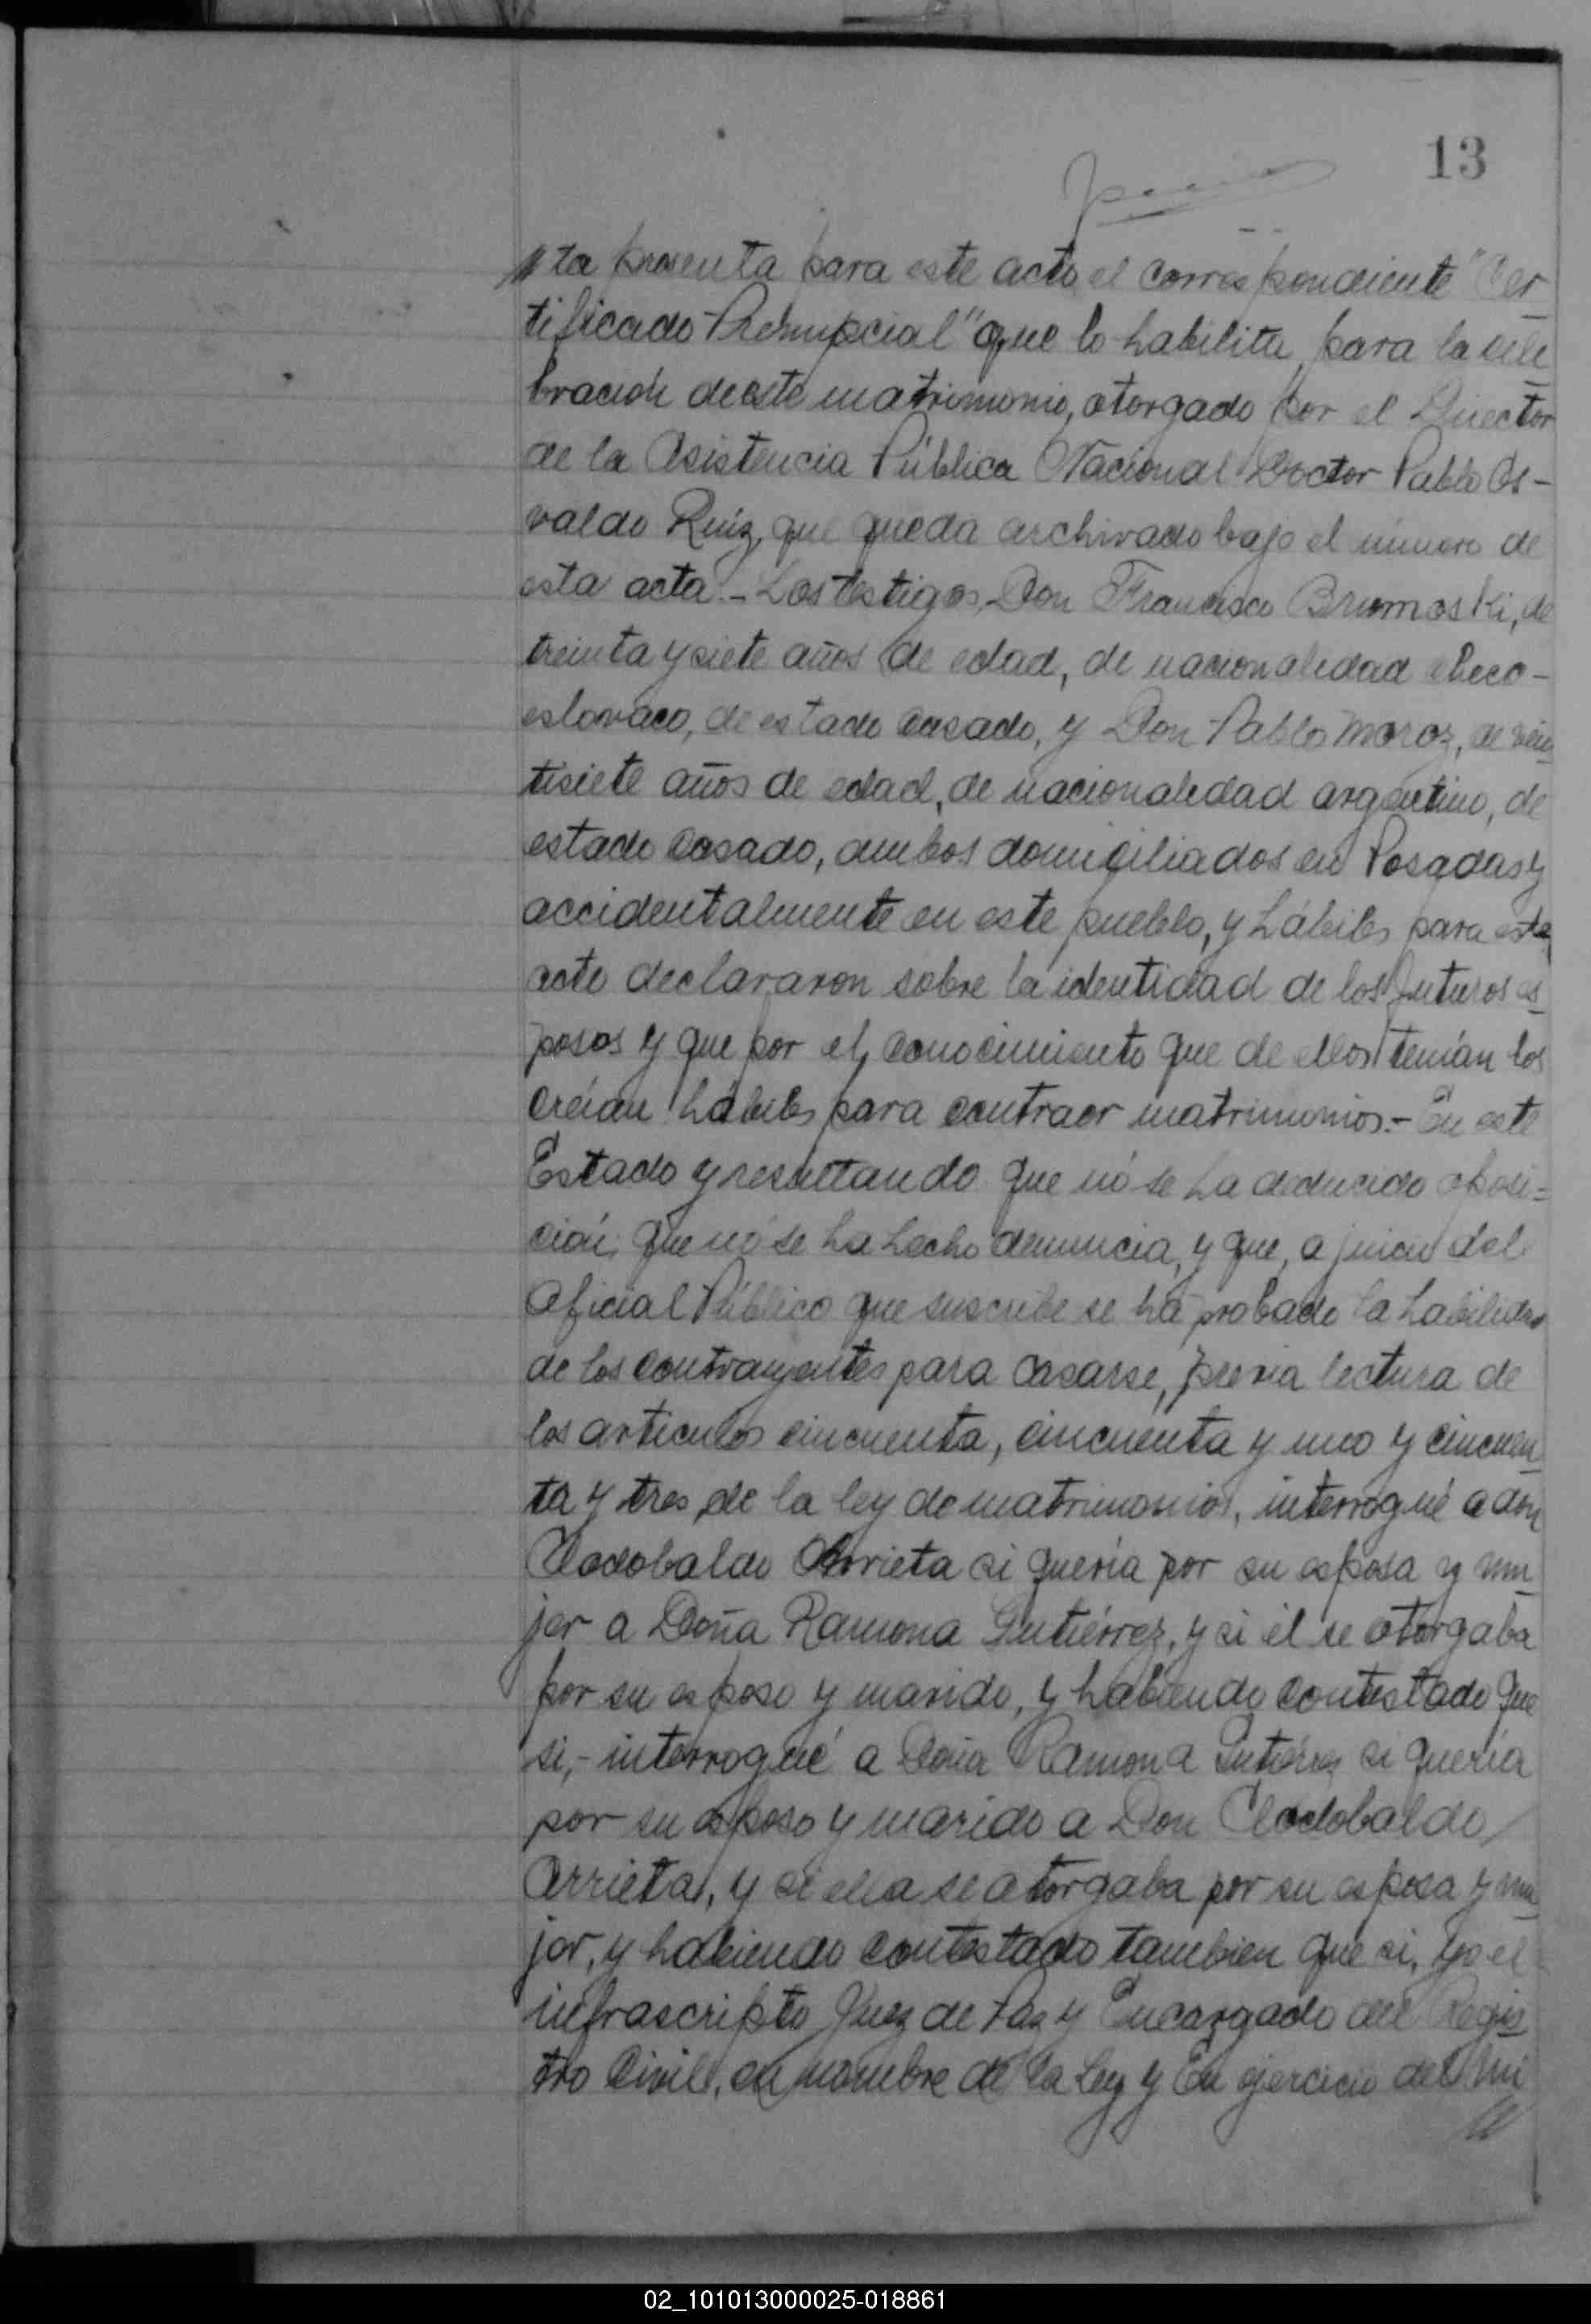 13
//ta presenta para este acto el correspondiente "Cer
tificado Prenupcial" que lo habilita, para la cele
bración de este matrimonio, otorgado por el Director
de la Asistencia Pública Nacional Doctor Pablo Os-
valdo Ruíz, que queda archivado bajo el número de
esta acta.- Los testigos, Don Francisco Brumoski, de
treinta y siete años de edad, de nacionalidad checo-
eslovaco, de estado casado, y Don Pablo Moroz, de vein
tisiete años de edad, de nacionalidad argentino, de
estado casado, ambos domiciliados en Posadas y
accidentalmente en este pueblo, y hábiles para este
acto declararon sobre la identidad de los futuros es
posos y que por el conocimiento que de ellos tenían los
creían hábiles para contraer matrimonio.- En este
Estado y resultando que nó se ha deducido oposi=
ción, que nó se ha hecho denuncia, y que, a juicio del
Oficial Público que suscribe se ha probado la habilidad
de los contrayentes para casarse, previa lectura de
los articulos cincuenta, cincuenta y uno y cincuen
ta y tres de la ley de matrimonios, interrogué a don
Clodobaldo Arrieta si quería por su esposa y mu
jer a Doña Ramona Gutiérrez, y si él se otorgaba
por su esposo y marido, y habiendo contestado que
si,- interrogué a Doña Ramona Gutiérrez si quería
por su esposo y marido a Don Clodobaldo
Arrieta, y si ella se otorgaba por su esposa y mu
jer, y habiendo contestado tambien que si, yo el
infrascripto Juez de Paz y Encargado del Regis
tro Civil, en nombre de la Ley y En ejercicio del mi
//
02_101013000025-018861